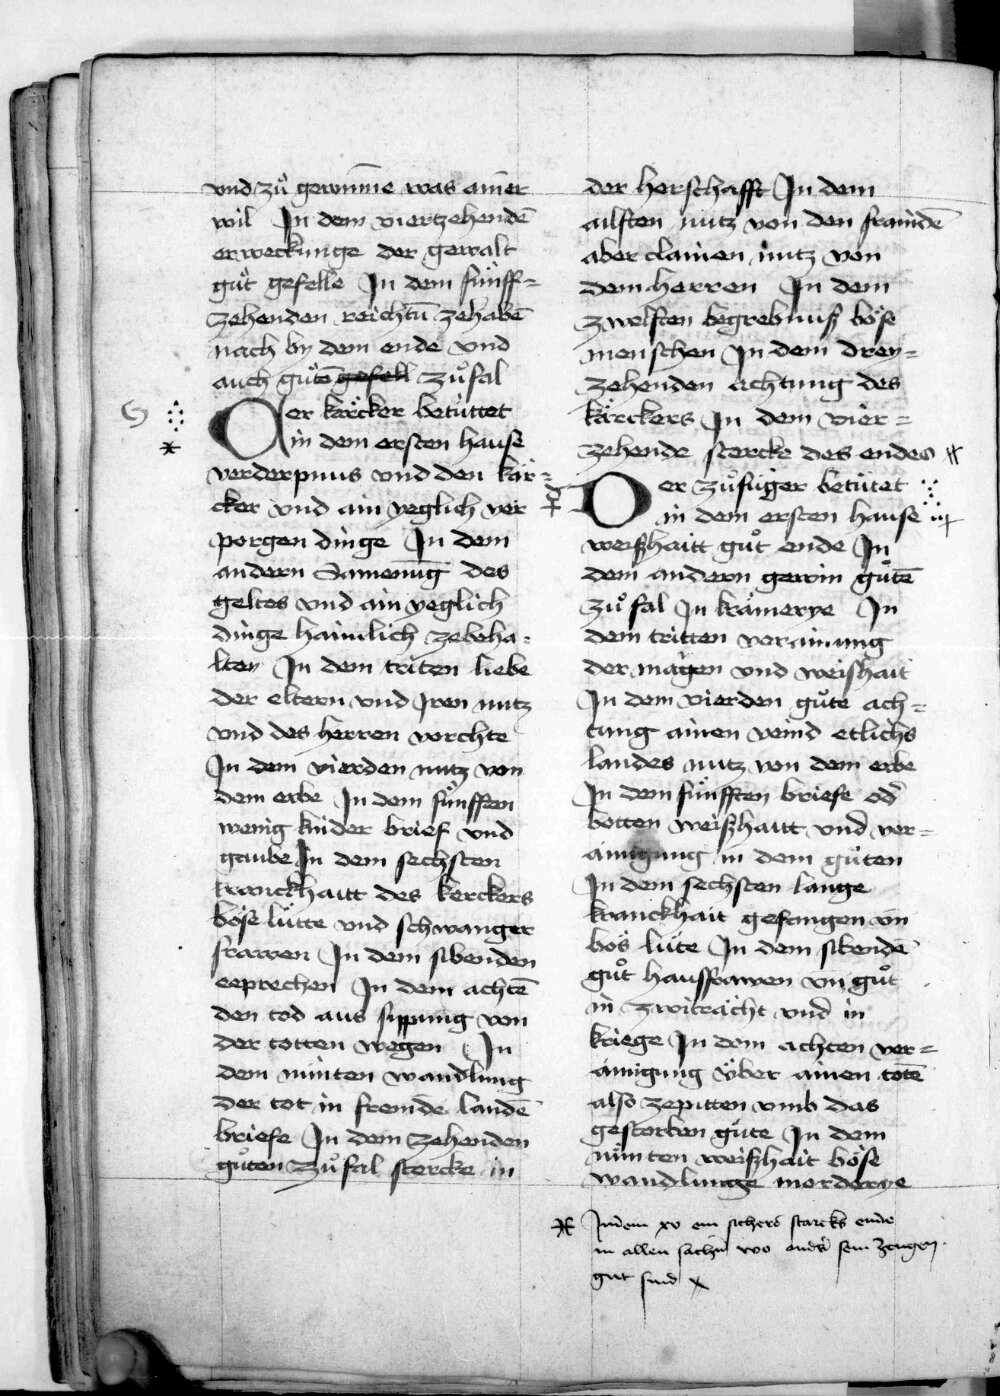 vnd zů gewinne was ainer
wil In dem viertzehendē
erweckunge der gewalt
gůt gefelle In dem fünff=
zehenden reichtū zehabē
nach by dem ende vnd
auch gůtē gefell zůfal
Der kärcker betüttet
in dem ersten hause
verderpnus vnd den kär=
cker vnd ain yeglich ver
porgen dinge In dem
andern Samenūg des
geltes vnd ain yeglich
dinge haimlich zebeha=
lten In dem triten liebe
der eltern vnd Iren nutz
vnd des herren vorchte
In dem vierden nutz von
dem erbe In dem fünfften
wenig kinder brief vnd
gaube In dem sechsten
kranckhaitt des kerckers
böse lütte vnd schwanger
frawen In dem sibenden
eeprechen In dem achtē
den tod aus sippung von
der totten wegen In
dem nünten wandlung
der tot in fremde landē
briefe In dem zehenden
gůten zůfal stercke in
der herschafft In dem
ailften nutz von den fraindē
aber clainen nutz von
dem herren In dem
zwelften begrebnuß böse
menschen In dem drey=
zehenden achtung des
kärckers In dem vier=
zehende stercke des endes
Der zůfüger betütet
in dem ersten hause
weißhaitt gůt ende In
dem andern gewin gůtē
zůfal In krämerye In
dem tritten verainung
der magen vnd weishait
In dem vierden gůte ach=
tung ainen veind etlichs
landes nutz von dem erbe
In dem fünfften briefe od̄
botten weißhait vnd ver=
ainigung in dem gůten
In dem sechsten lange
kranckhait gefangen vn̄
bös lüte In dem sibendē
gůt haussfrawen vn̄ gůt
in zwiträcht vnd in
kriege In dem achten ver=
ainigung über ainen totē
also zepitten vmb das
gestorben gůte In dem
nünten weißhait böse
wandlunge morderye
In dem xv ein sichers starcks ende
in allen sachn̄ wo anders sein zeugen
gut sind